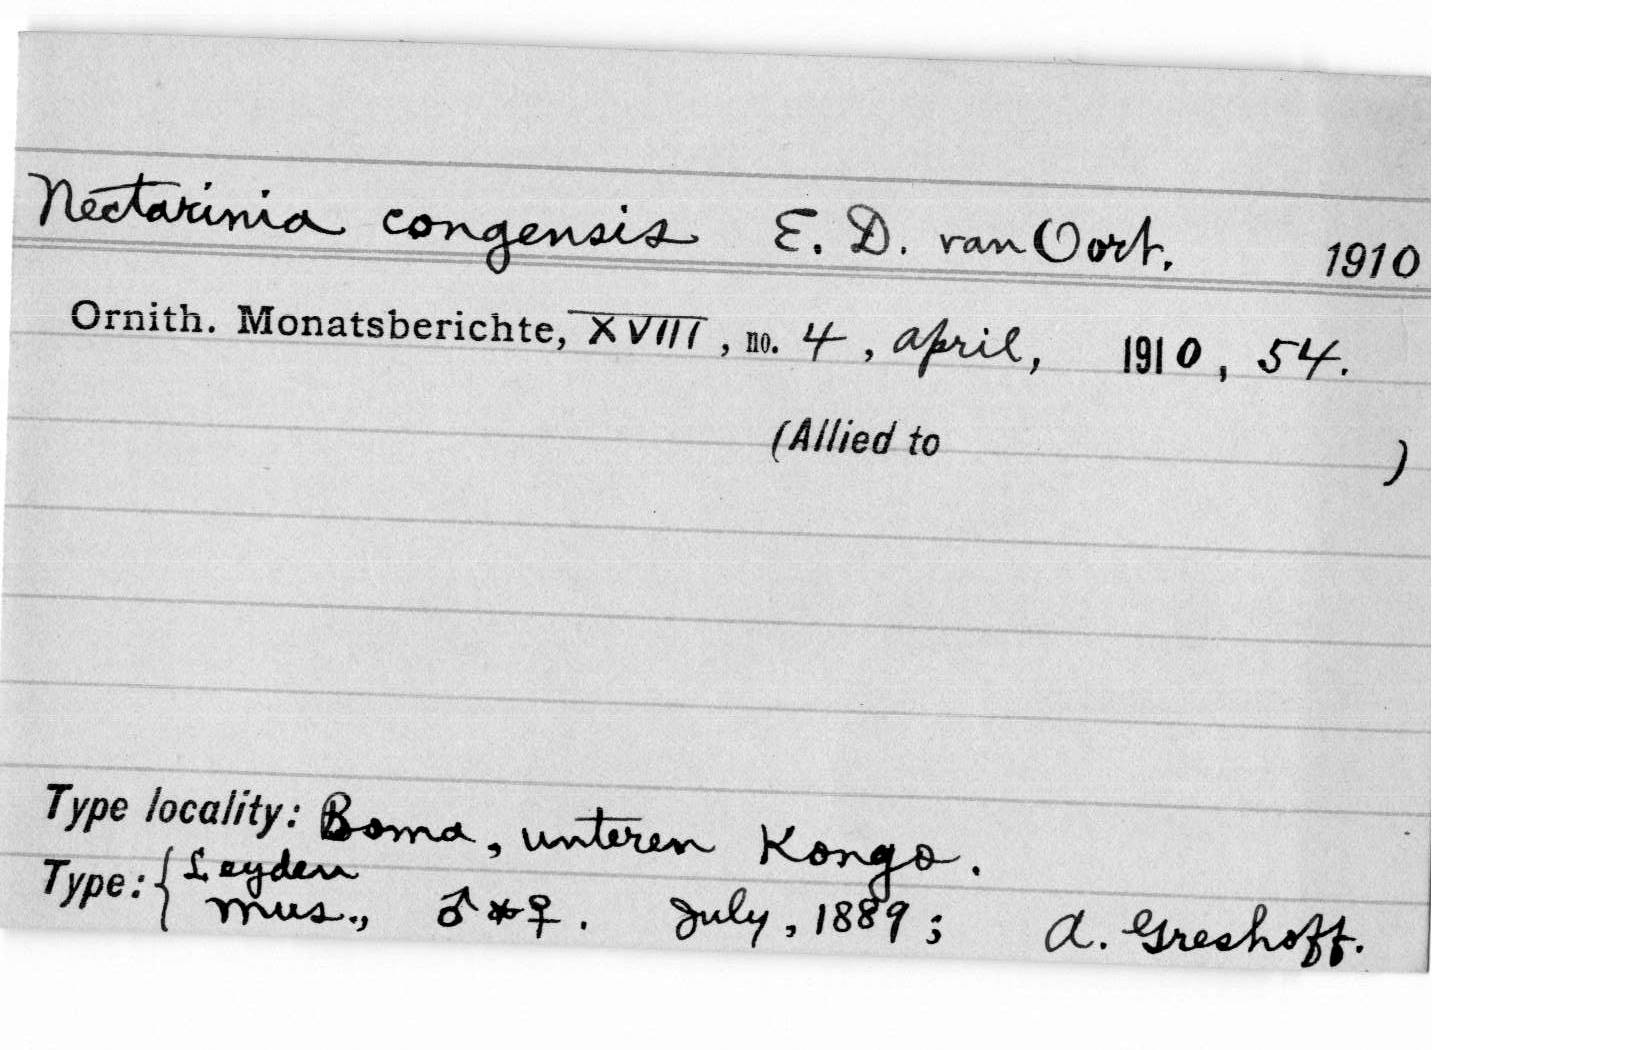 Nectarinia congensis E. D. van Oort. 1910
Ornith. Monatsberichte, XVIII, no. 4, april, 1910, 54.
(Allied to )
Type locality: Boma, unteren Kongo.
Type: { Leyden
Mus., ♂ & ♀. July, 1889; A. Greshoff.